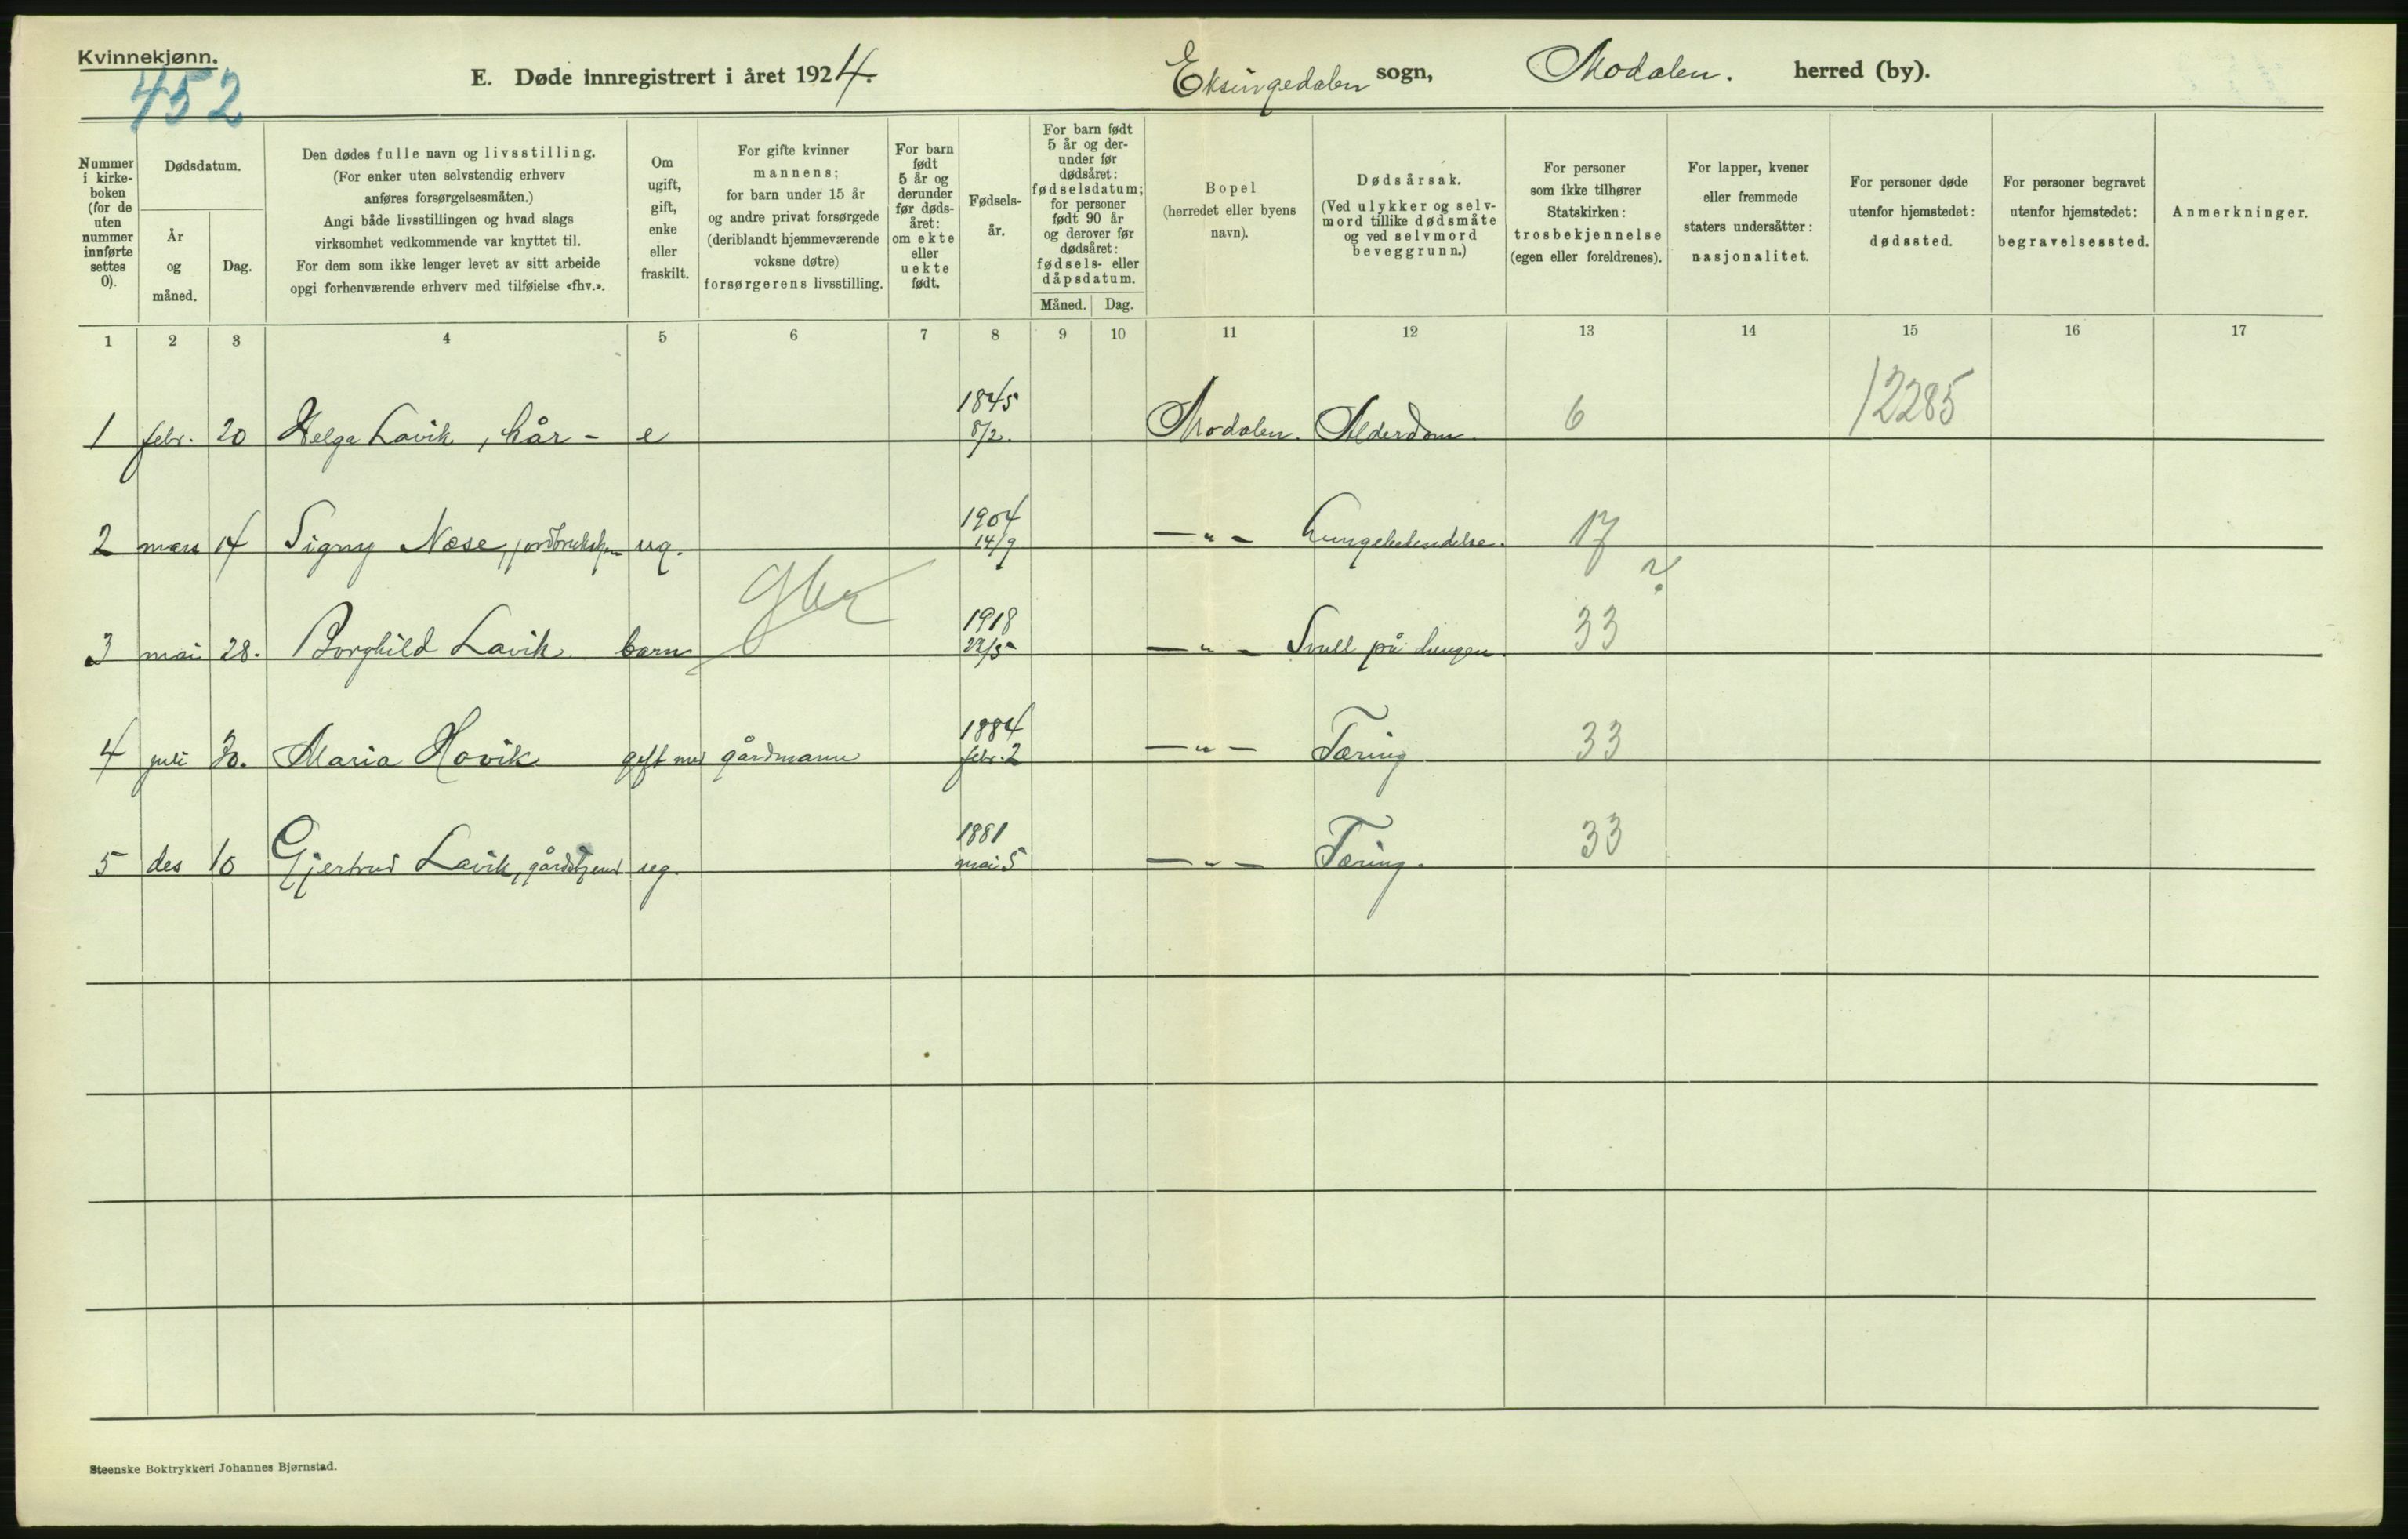 Kvinnekjønn.
452
E. Døde innregistrert i året 1924.
Eksingedalen sogn, Modalen. herred (by).
Nummer i kirke-boken (for de uten nummer innførte settes 0).
Dødsdatum.
År og måned.
Dag.
Den dødes fulle navn og livsstilling.
(For enker uten selvstendig erhverv
anføres forsørgelsesmåten.)
Angi både livsstillingen og hvad slags
virksomhet vedkommende var knyttet til.
For dem som ikke lenger levet av sitt arbeide
opgi forhenværende erhverv med tilføielse «fhv.».
Om ugift, gift, enke eller fraskilt.
For gifte kvinner
mannens;
for barn under 15 år
og andre privat forsørgede
(deriblandt hjemmeværende
voksne døtre)
forsørgerens livsstilling.
For barn født 5 år og derunder før døds-året: om ekte eller uekte født.
Fødsels-
år.
For barn født
5 år og der-
under før
dødsåret:
fødselsdatum;
for personer
født 90 år
og derover før
dødsåret:
fødsels- eller
dåpsdatum.
Måned. Dag.
Bopel
(herredet eller byens
navn).
Dødsårsak.
(Ved ulykker og selv-
mord tillike dødsmåte
og ved selvmord
beveggrunn.)
For personer
som ikke tilhører
Statskirken:
trosbekjennelse
(egen eller foreldrenes).
For lapper, kvener
eller fremmede
staters undersåtter:
nasjonalitet.
For personer døde
utenfor hjemstedet:
dødssted.
For personer begravet
utenfor hjemstedet:
begravelsessted.
Anmerkninger.
1 2 3 4 5 6 7 8 9 10 11 12 13 14 15 16 17
1 febr. 20 Helga Lavik, kår - e 1845 8/2. Modalen. Alderdom. 6 12285
2 mars 14 Signy Næse, ug. 1904 14/9 — " — Lungebetendelse. 17
3 mai 28. Borghild Lavik barn 1918 22/5 — " — Svull på lungen. 33 ?
4 juli 30. Maria Hovik gift med gårdmann 1884 febr. 2 — " — Tæring 33
5 des 10 Gjertrud Lavik, ug. 1881 mai 5 — " — Tæring. 33
Steenske Boktrykkeri Johannes Bjørnstad.